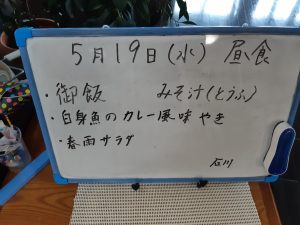 5月19日(水) 昼食
・御飯 みそ汁(とうふ)
・白身魚のカレー風味やき
・春雨サラダ
石川